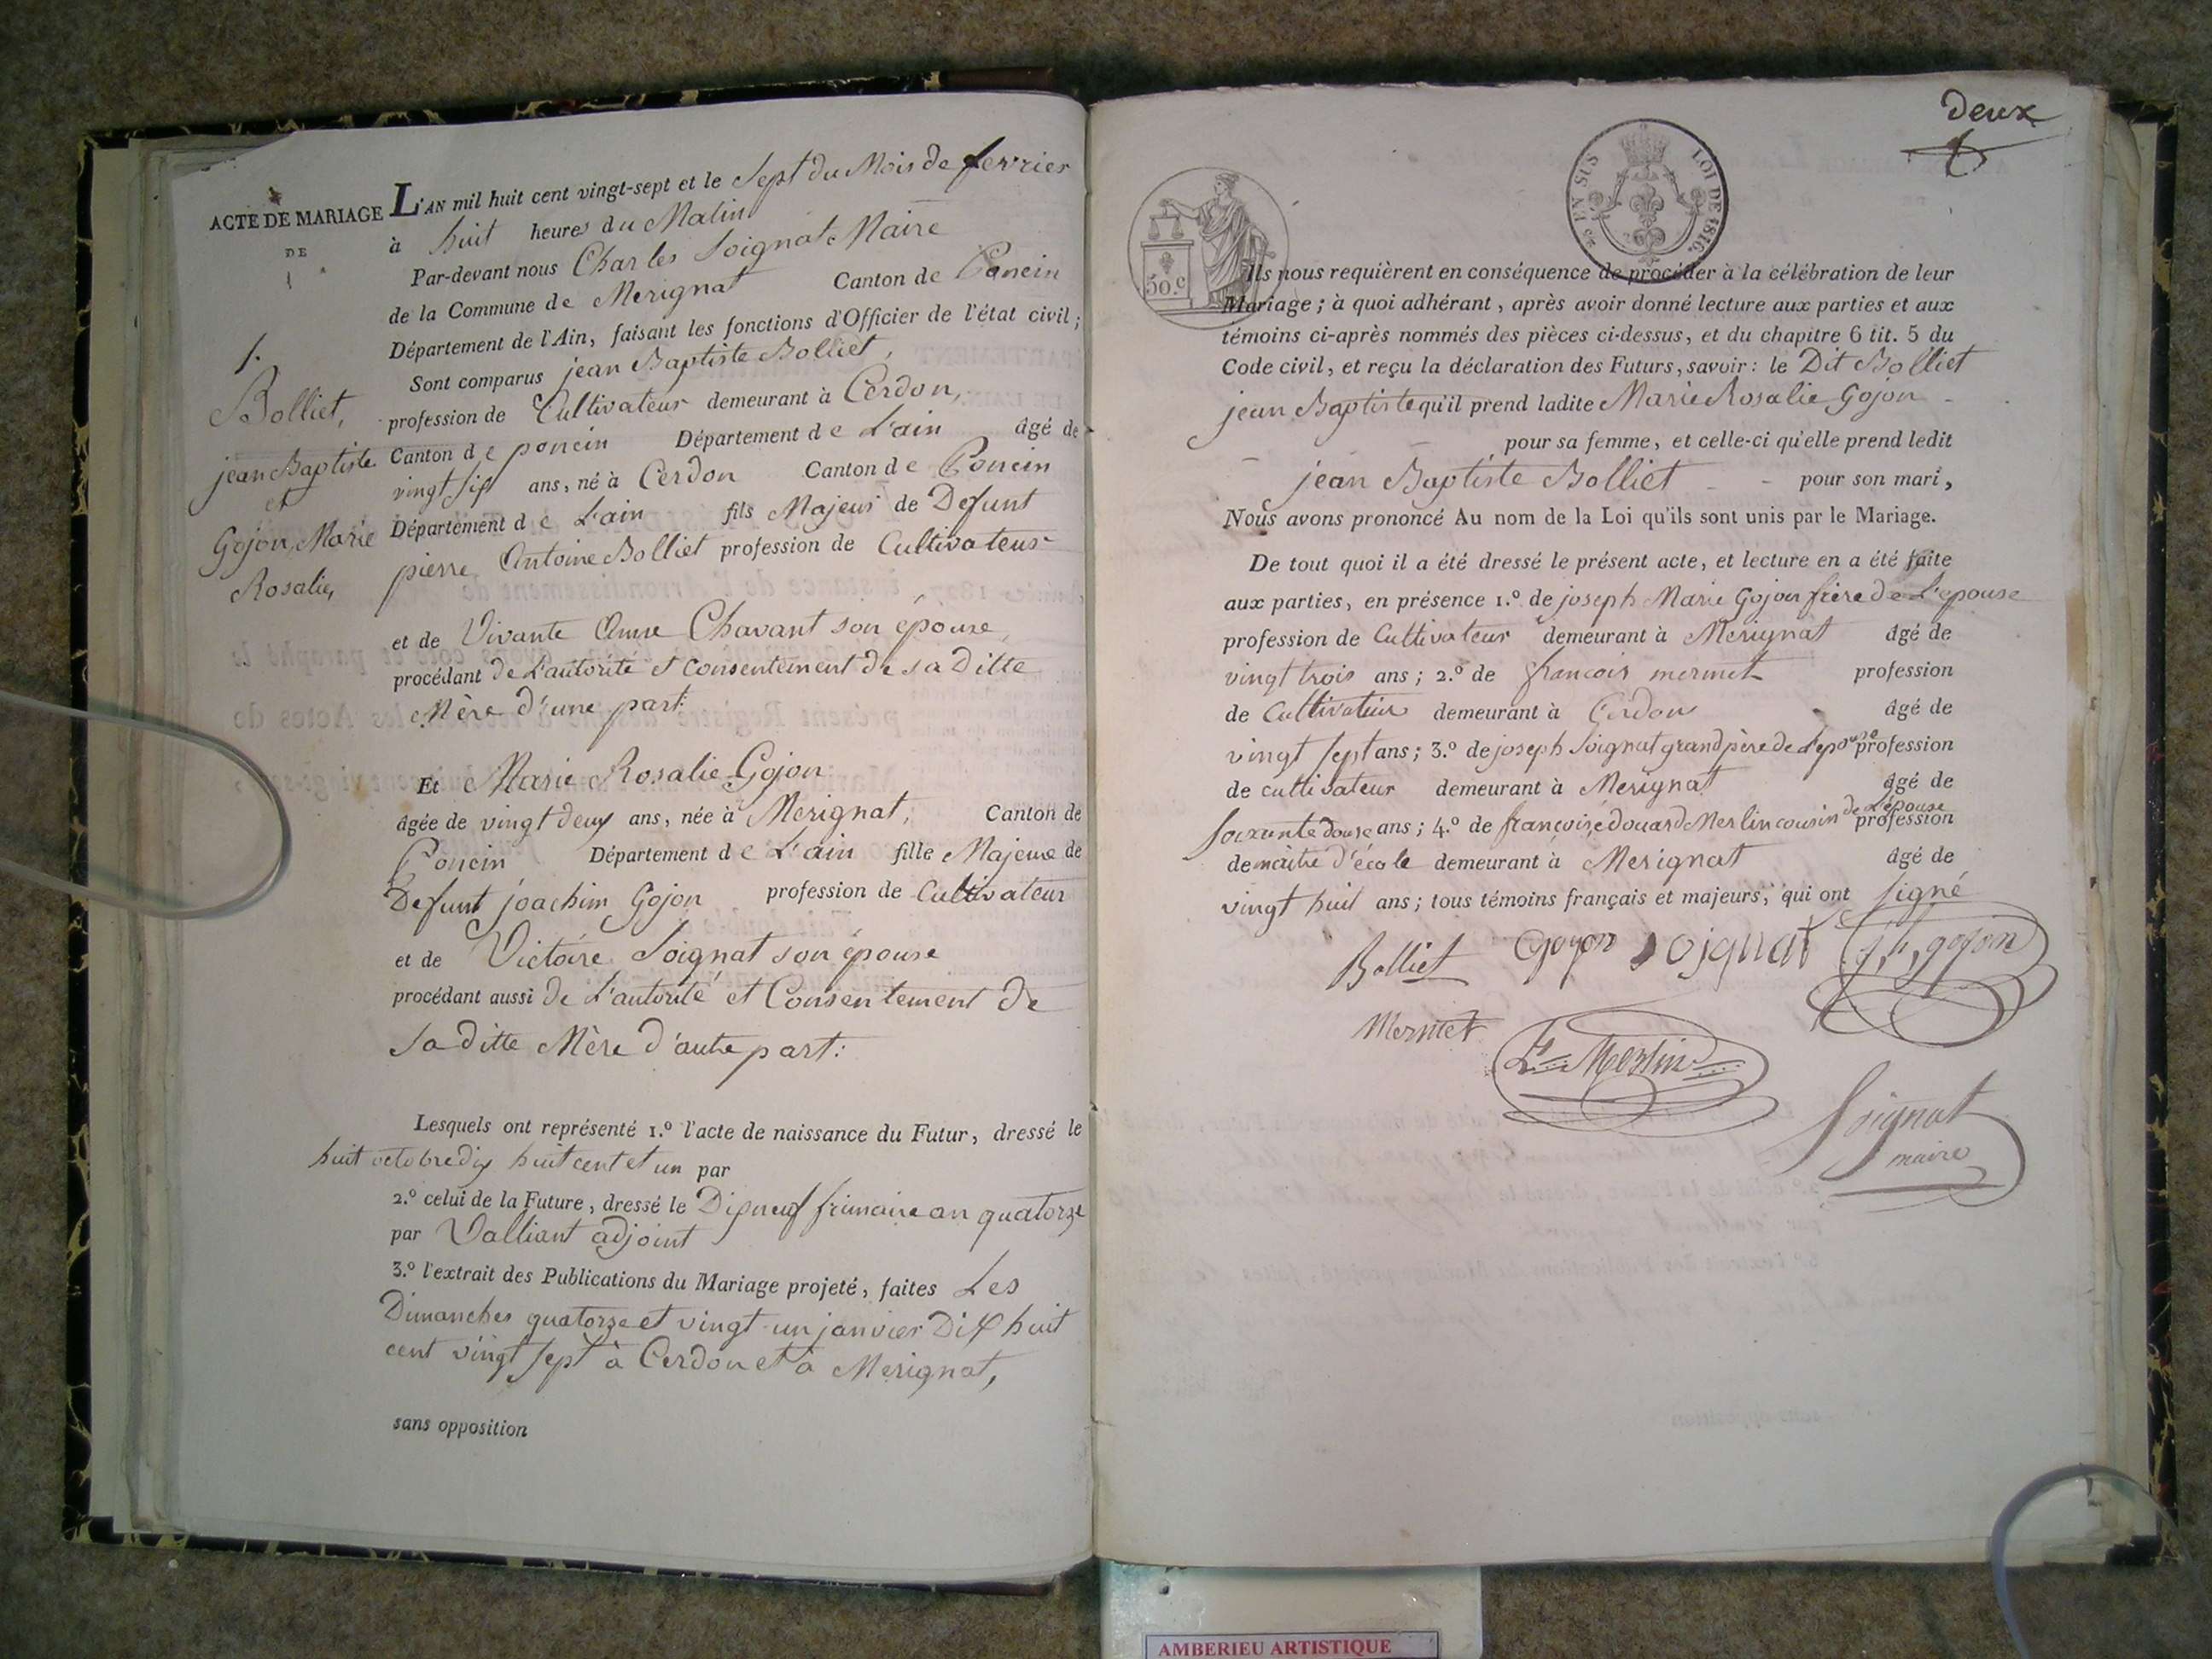 ACTE DE MARIAGE
DE
1.
Bolliet,
jean Baptiste
et
Gojon, Marie
Rosalie,
L'AN mil huit cent vingt-sept et le Sept du Mois de fevrier
à huit heures du Matin
Par-devant nous Charles Soignat Maire
de la Commune de Merignat Canton de Poncin
Département de l'Ain, faisant les fonctions d'Officier de l'état civil;
Sont comparus jean Baptiste Bolliet,
profession de Cultivateur demeurant à Cerdon,
Canton de poncin Département de L'ain âgé de
vingt six ans, né à Cerdon Canton de Poncin
Département de L'ain fils Majeur de Defunt
pierre Antoine Bolliet profession de Cultivateur
et de Vivante Anne Chavant son épouse,
procédant de L'autorité et consentement de sa Ditte
Mère d'une part:
Et Marie Rosalie Gojon
âgée de vingt deux ans, née à Merignat, Canton de
Poncin Département de L'ain fille Majeure de
Defunt joachim Gojon profession de Cultivateur
et de Victoire Soignat son épouse
procédant aussi de L'autorité et Consentement de
Sa Ditte Mère d'autre part:
Lesquels ont représenté 1.º l'acte de naissance du Futur, dressé le
huit octobre dix huit cent et un par
2.º celui de la Future, dressé le Dix neuf frimaire an quatorze
par Valliant adjoint
3.º l'extrait des Publications du Mariage projeté, faites Les
Dimanches quatorze et vingt-un janvier Dix huit
cent vingt Sept à Cerdon et à Merignat,
sans opposition
deux
EN SUS
LOI DE 1816.
50.c
Ils nous requièrent en conséquence de procéder à la célébration de leur
Mariage; à quoi adhérant, après avoir donné lecture aux parties et aux
témoins ci-après nommés des pièces ci-dessus, et du chapitre 6 tit. 5 du
Code civil, et reçu la déclaration des Futurs, savoir: le Dit Bolliet
jean Baptiste qu'il prend ladite Marie Rosalie Gojon -
pour sa femme, et celle-ci qu'elle prend ledit
- jean Baptiste Bolliet - - pour son mari,
Nous avons prononcé Au nom de la Loi qu'ils sont unis par le Mariage.
De tout quoi il a été dressé le présent acte, et lecture en a été faite
aux parties, en présence 1.º de joseph Marie Gojon frère de L'epouse
profession de Cultivateur demeurant à Merignat âgé de
vingt trois ans; 2.º de francois mermet profession
de Cultivateur demeurant à Cerdon âgé de
vingt Sept ans; 3.º de joseph Soignat grand père de L'epouse profession
de cultivateur demeurant à Merignat âgé de
Soixante douze ans; 4.º de françois édouard Merlin cousin de L'épouse profession
de maitre d'école demeurant à Merignat âgé de
vingt huit ans; tous témoins français et majeurs, qui ont Signé
Bolliet Goyon Soignat gojon
Mermet Merlin
Soignat
maire
AMBERIEU ARTISTIQUE